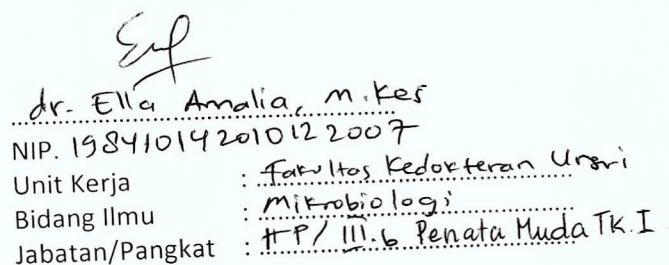 dr. Ella Amalia, M.Kes
NIP. 198410142010122007
Unit Kerja : Fakultas Kedokteran Unsri
Bidang Ilmu : Mikrobiologi
Jabatan/Pangkat : / III.b Penata Muda TK.I